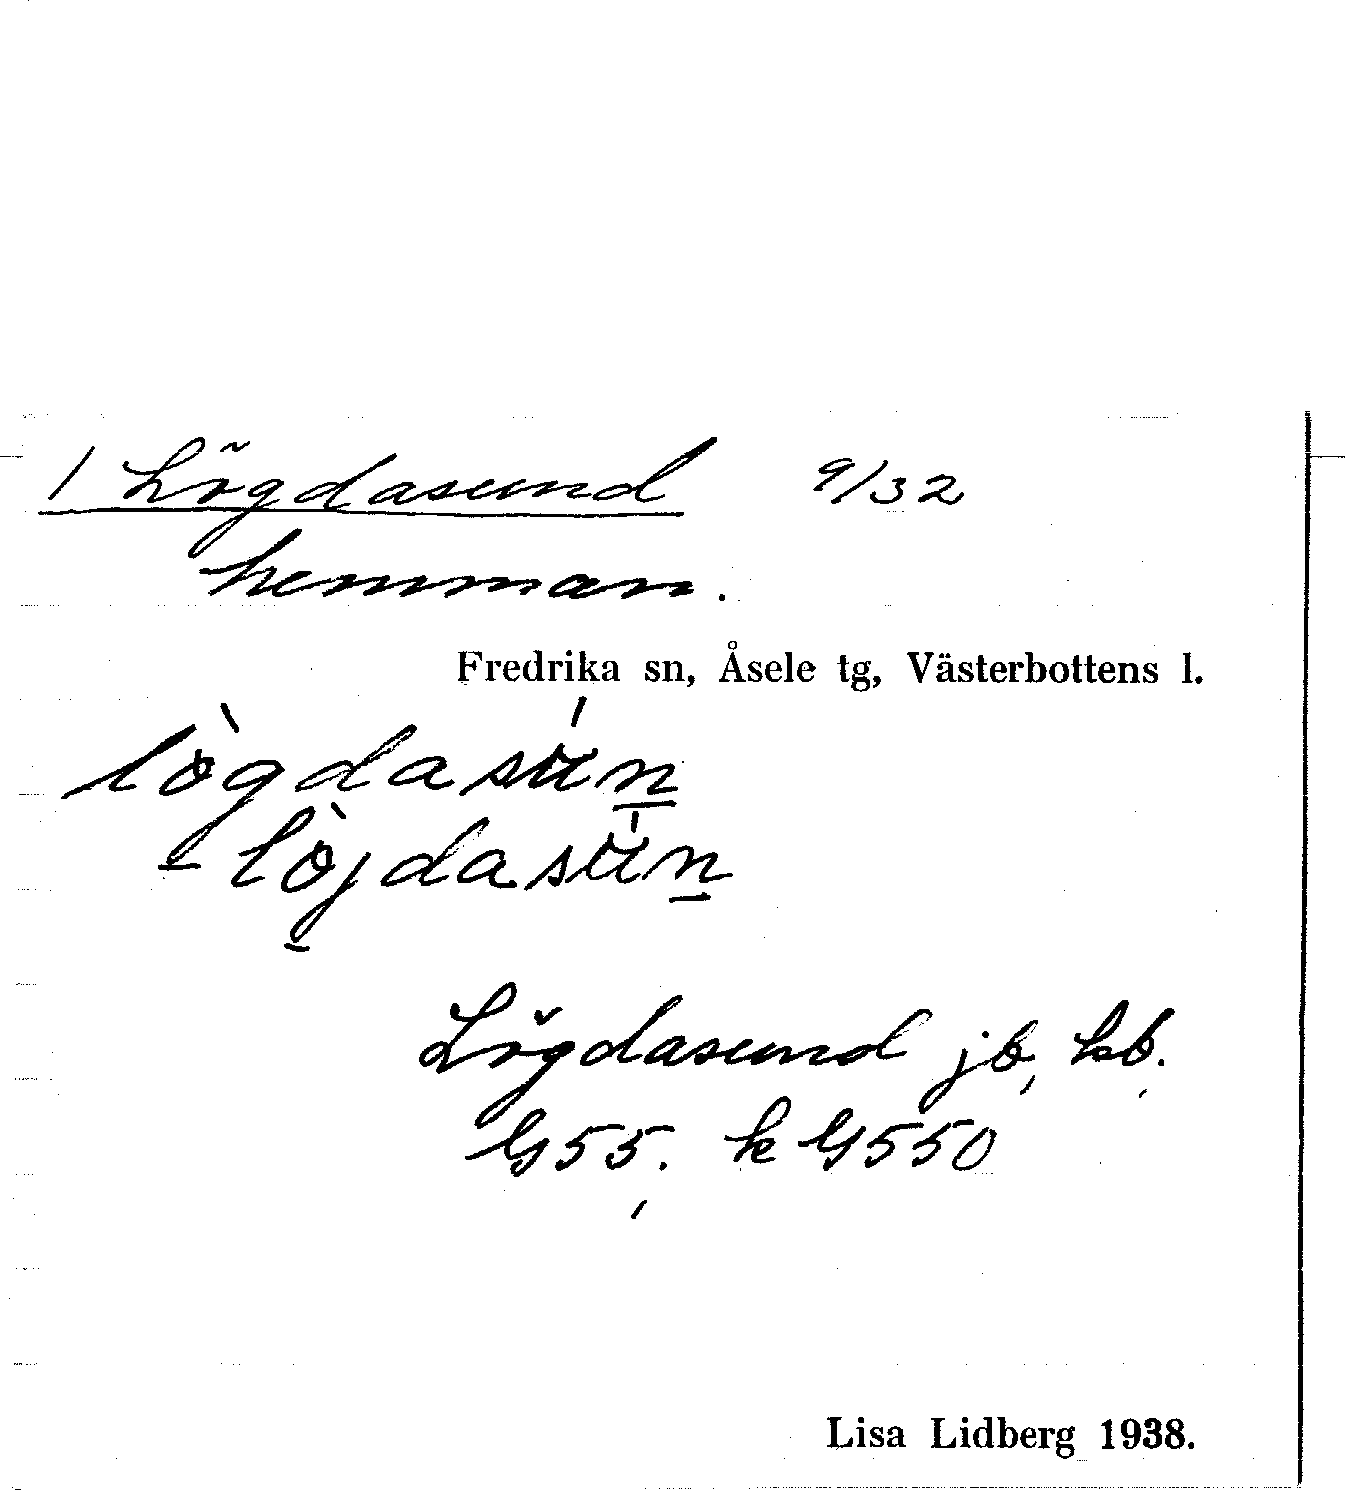 1 Lögdasund 9/32
hemman.
Fredrika sn, Åsele tg, Västerbottens l.
lògdasǘn̲
- lòjdasǘn̲
Lögdasund jb, kb.
G55. k G550
Lisa Lidberg 1938.